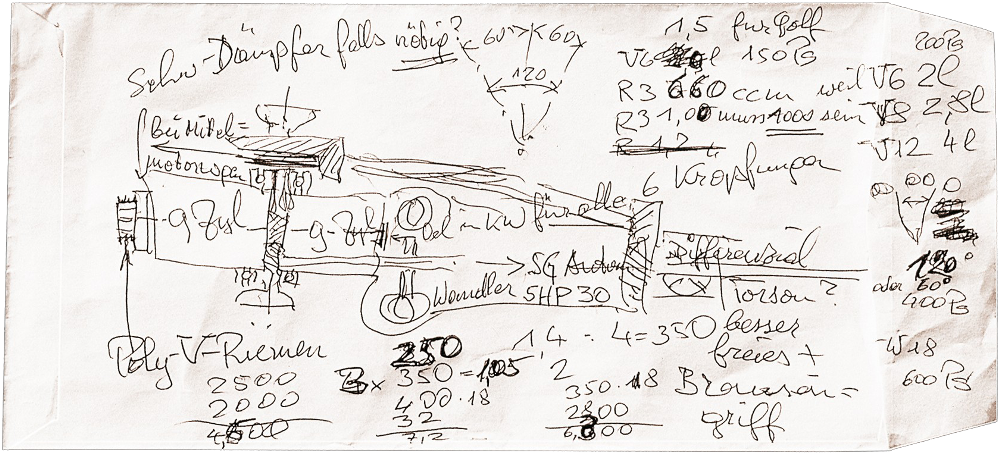 Schw-Dämpfer falls nötig?
60° 60
120
1,5 für Golf
V6 l 150 PS
R3 660 ccm weil
R3 1,00 muss 1000 sein
6 Kröpfungen
200 PS
V6 2l
V8 2,8l
V12 4l
120°
oder 60°
400 PS
W18
600 PS
Bei Mittel=
motorwagen
9 Zyl
9 Zyl
Öl in KW für alle
SG
Wandler 5HP30
Differenzial
Torson?
besser
freies +
Poly-V-Riemen
2500
2000
4,500
250
350 = 1,05
400 · 18
32
7,2
1,4 - 4 = 350
2
350 · 18
2800
6,300
griff